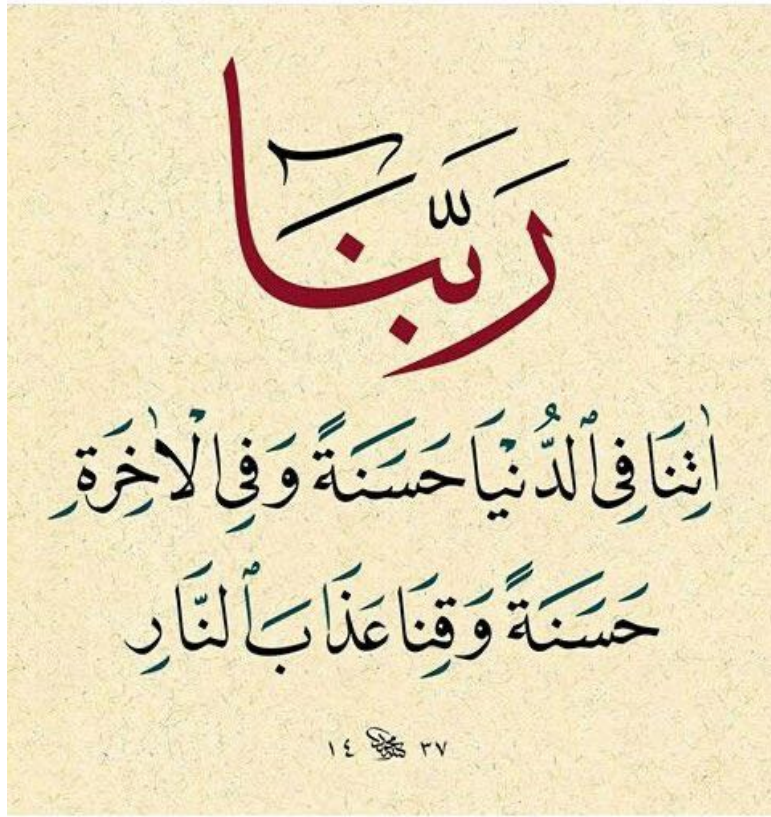 رَبَّنَٓا
اٰتِنَا فِى ٱلدُّنْيَا حَسَنَةً وَفِى الْاٰخِرَةِ
حَسَنَةً وَقِنَا عَذَابَ ٱلنَّارِ
١٤ ٣٧